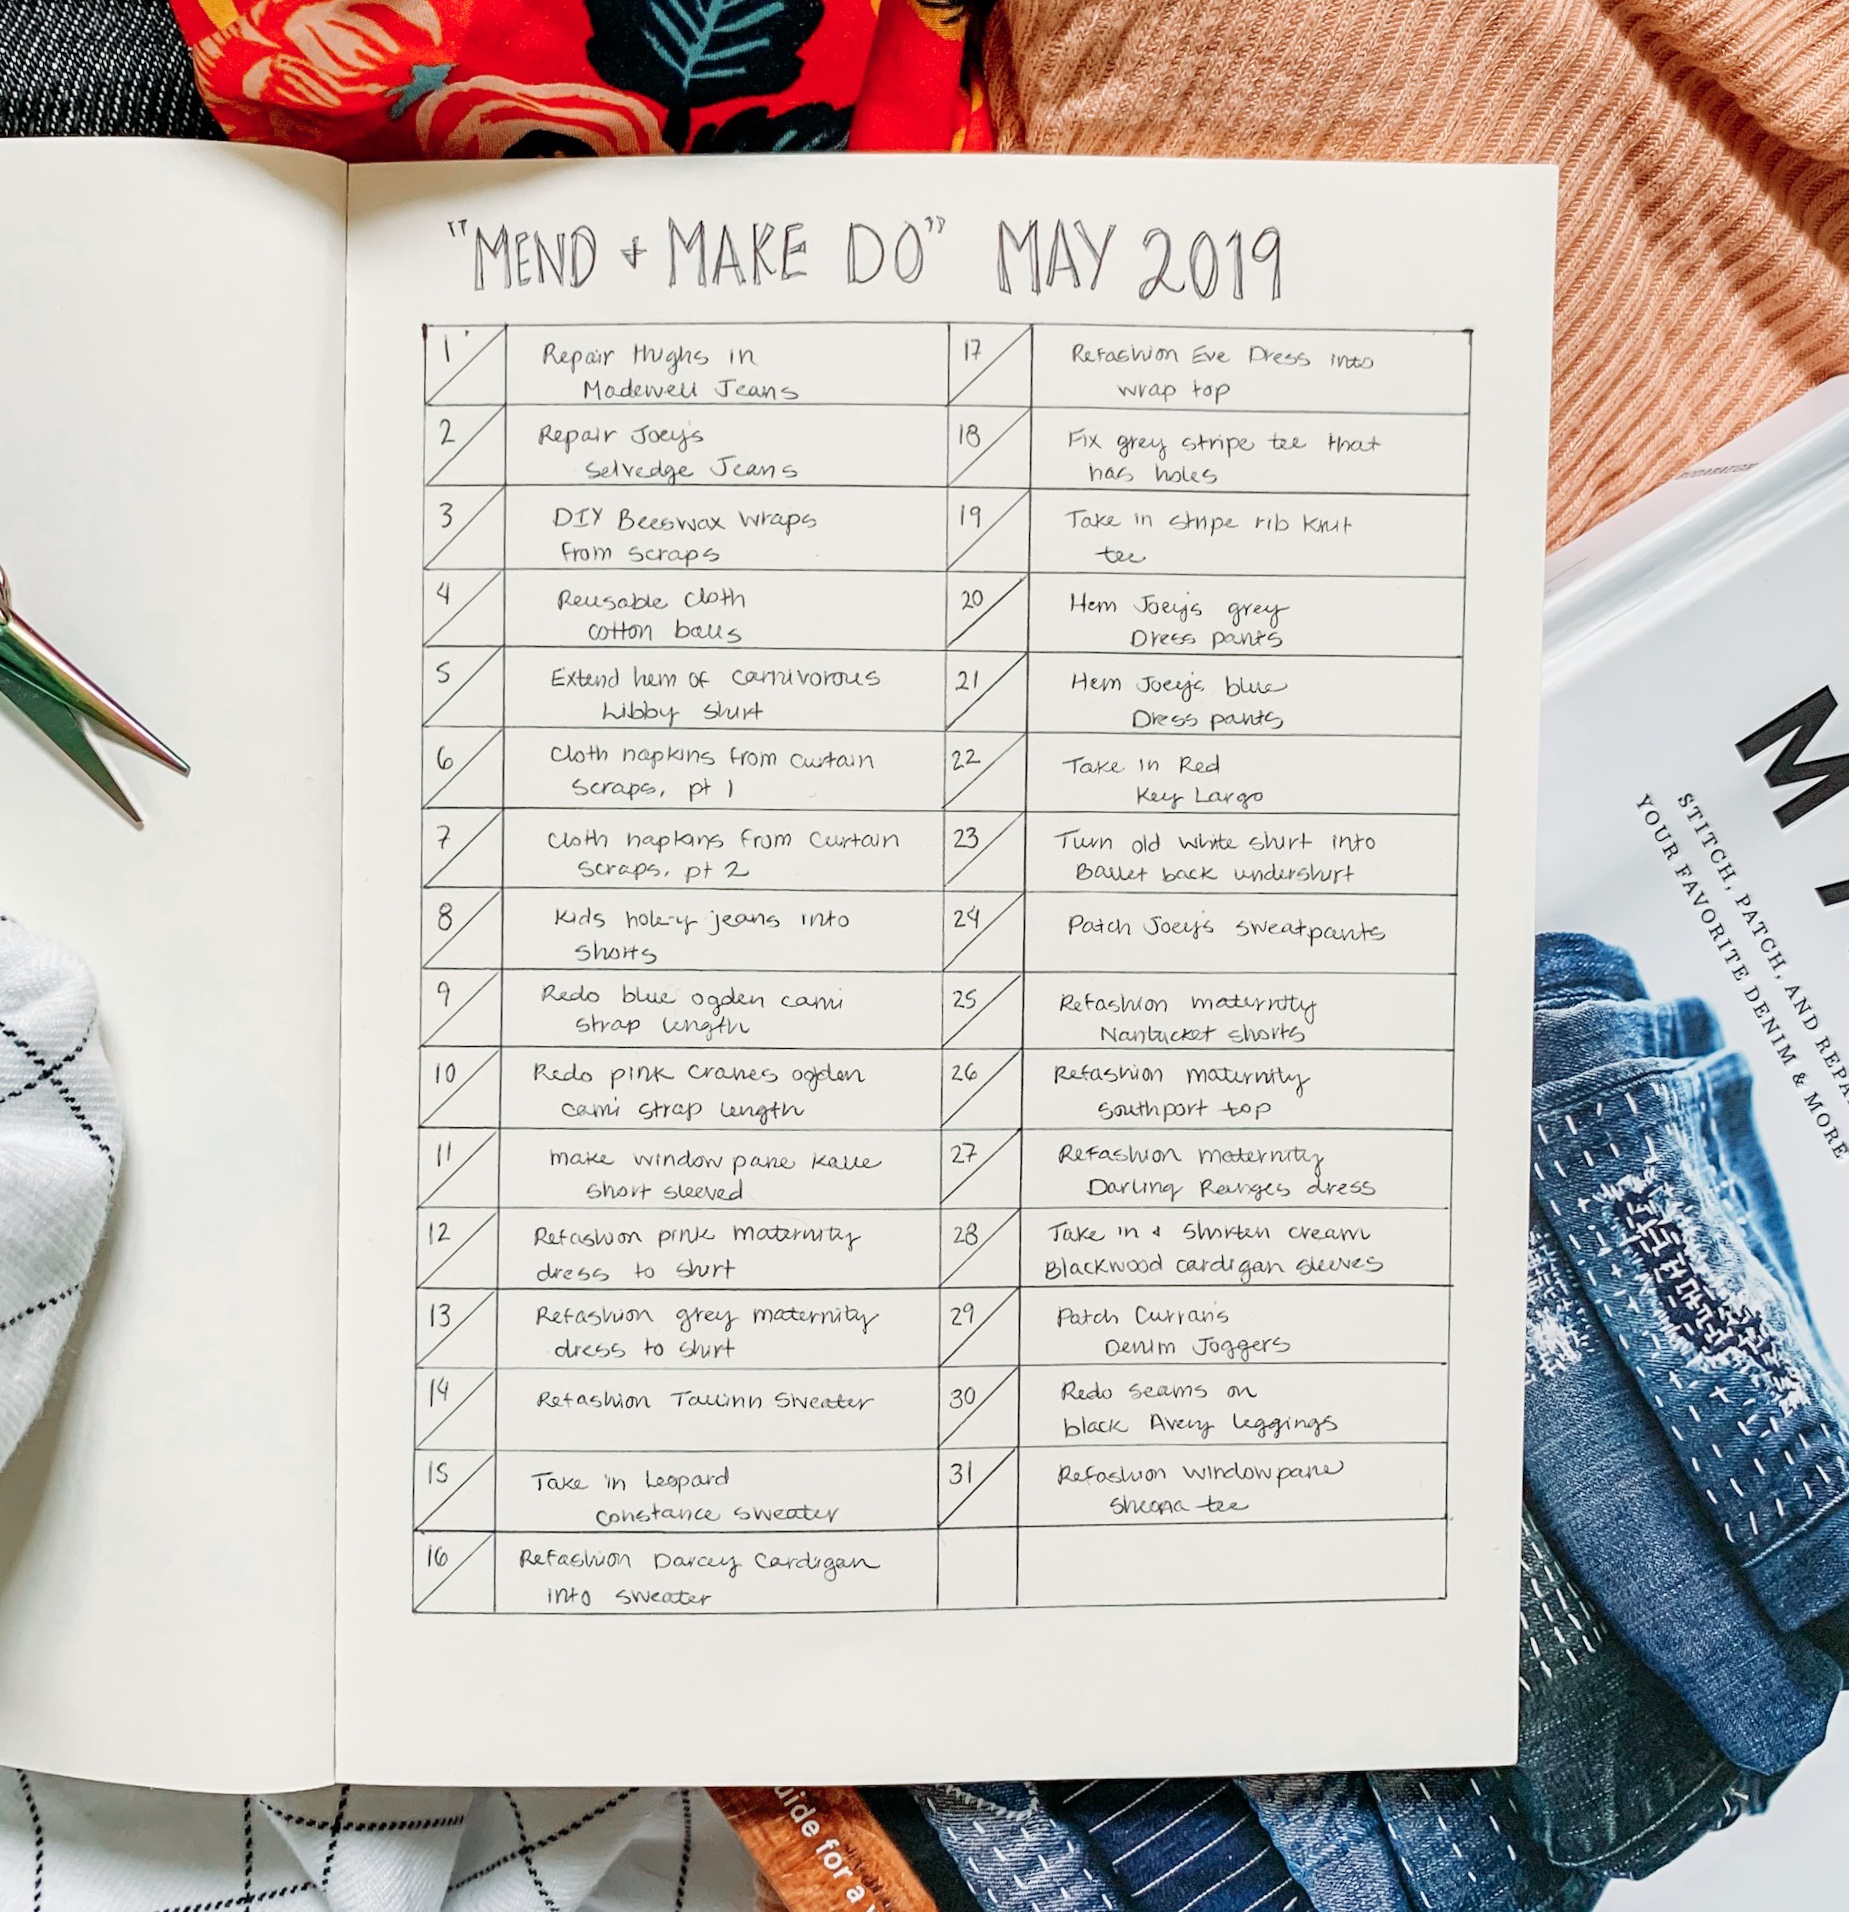 "MEND + MAKE DO" MAY 2019
1 Repair thighs in
Madewell Jeans
2 Repair Joey's
Selvedge Jeans
3 DIY Beeswax wraps
from scraps
4 Reusable cloth
cotton balls
5 Extend hem of carnivorous
Libby shirt
6 Cloth napkins from curtain
scraps, pt 1
7 Cloth napkins from curtain
scraps, pt 2
8 Kids holey jeans into
shorts
9 Redo blue ogden cami
strap length
10 Redo pink cranes ogden
cami strap length
11 make window pane Kalle
short sleeved
12 Refashion pink maternity
dress to shirt
13 Refashion grey maternity
dress to shirt
14 Refashion Tallinn Sweater
15 Take in Leopard
Constance sweater
16 Refashion Darcey Cardigan
into sweater
17 Refashion Eve Dress into
wrap top
18 Fix grey stripe tee that
has holes
19 Take in stripe rib knit
tee
20 Hem Joey's grey
Dress pants
21 Hem Joey's blue
Dress pants
22 Take in Red
Key Largo
23 Turn old white shirt into
Ballet back undershirt
24 Patch Joey's sweatpants
25 Refashion maternity
Nantucket shorts
26 Refashion maternity
Southport top
27 Refashion maternity
Darling Ranges dress
28 Take in & Shorten cream
Blackwood cardigan sleeves
29 Patch Curran's
Denim Joggers
30 Redo seams on
black Avery leggings
31 Refashion windowpane
tee
M
STITCH, PATCH, AND REPA
YOUR FAVORITE DENIM & MORE
uide for a